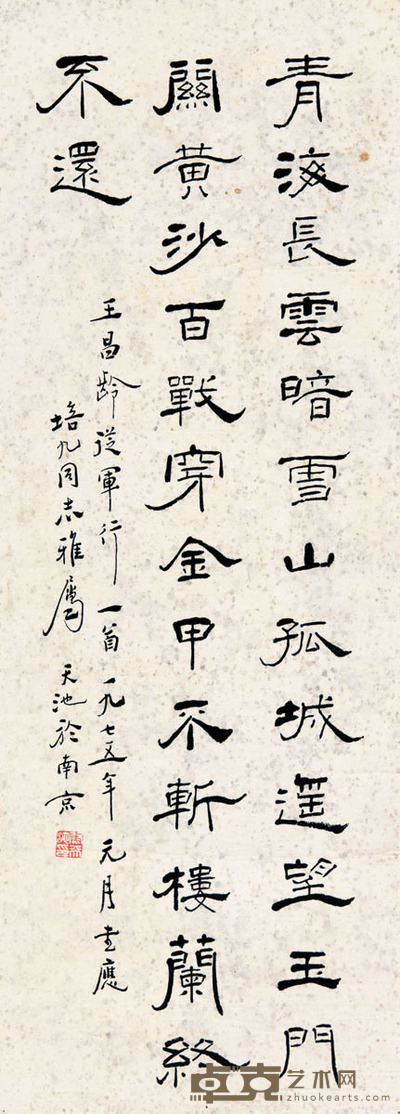 青海長雲暗雪山孤城遥望玉門
關黃沙百戰穿金甲不斬樓蘭終
不還
王昌齡從軍行一首 一九七五年元月書應
培九同志雅屬 天池於南京
卓克艺术网
zhuokearts.com